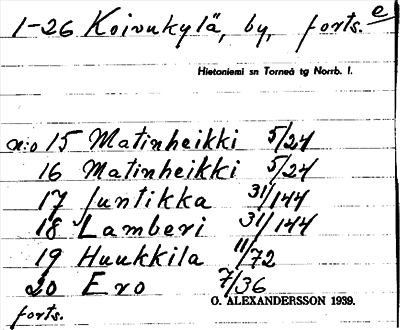 1-26 Koivukylä, by, forts. e
Hietaniemi sn Torneå tg Norrb. l.
n:o 15 Matinheikki 5/24
16 Matinheikki 5/24
17 Juntikka 31/144
18 Lamberi 31/144
19 Huukkila 11/72
20 Ero 7/36
O. ALEXANDERSSON 1939.
forts.